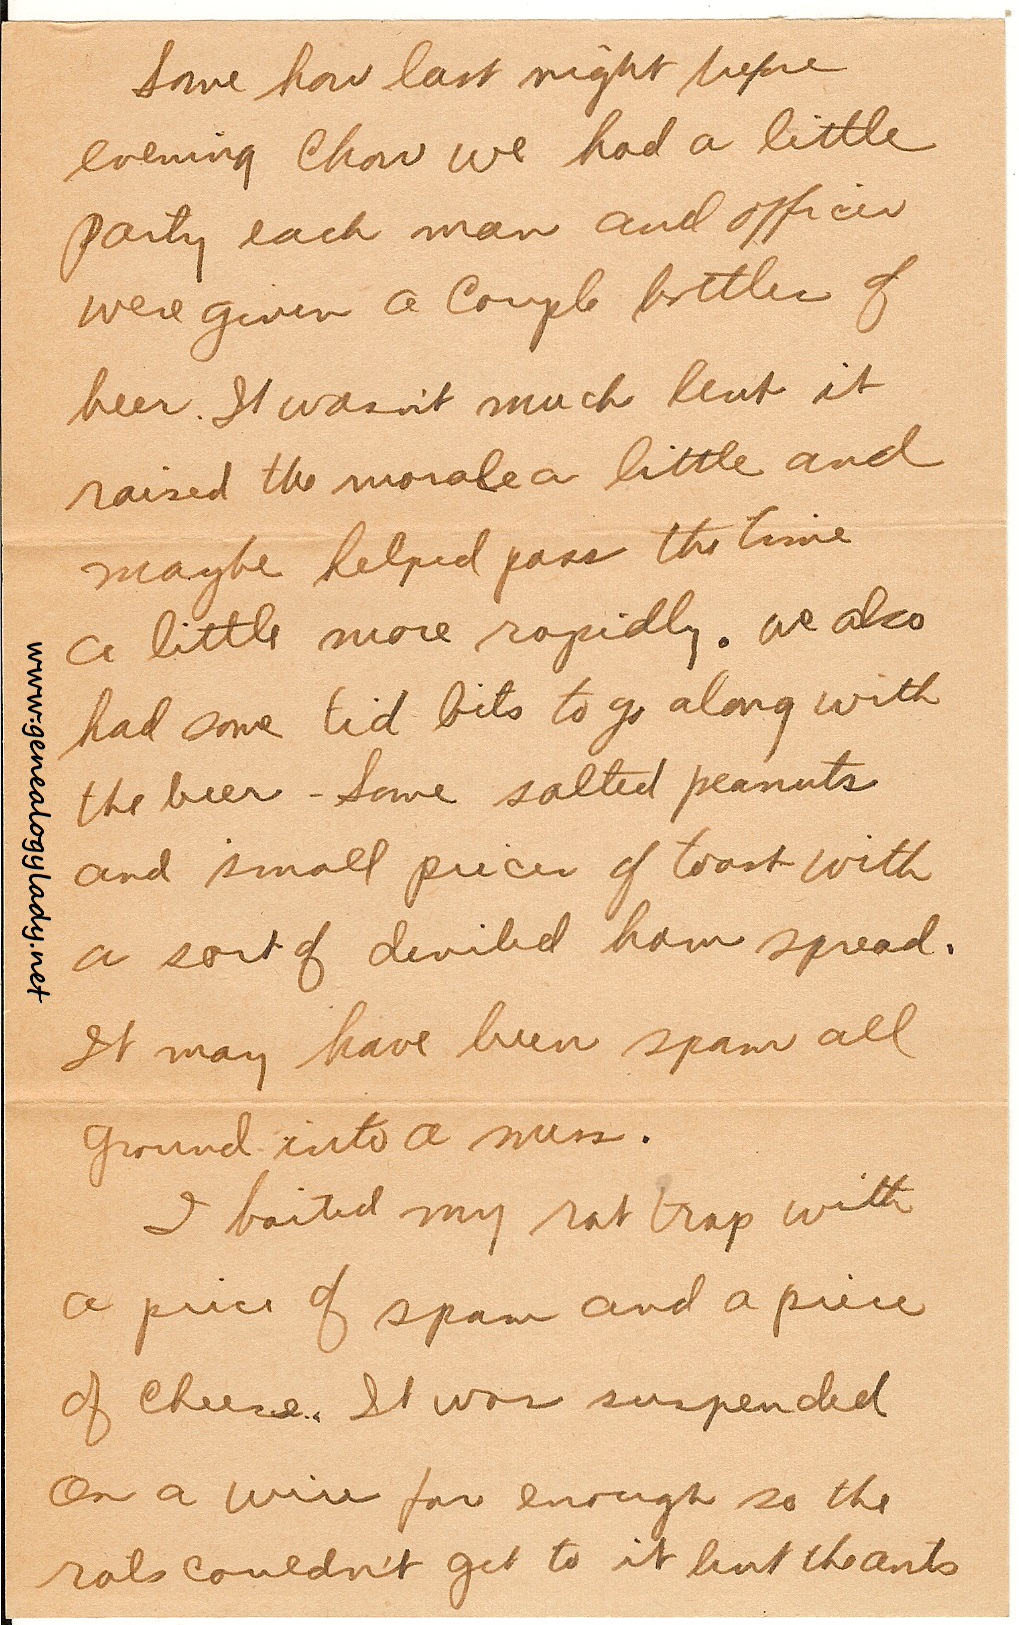 Some how last night before
evening Chow we had a little
party each man and officer
were given a couple bottles of
beer. It wasn't much but it
raised the morale a little and
maybe helped pass the time
a little more rapidly. We also
had some tid bits to go along with
the beer - Some salted peanuts
and small pieces of toast with
a sort of deviled ham spread.
It may have been spam all
ground into a mess.
I baited my rat trap with
a piece of spam and a piece
of cheese. It was suspended
on a wire far enough so the
rats couldn't get to it but the ants
www.genealogylady.net